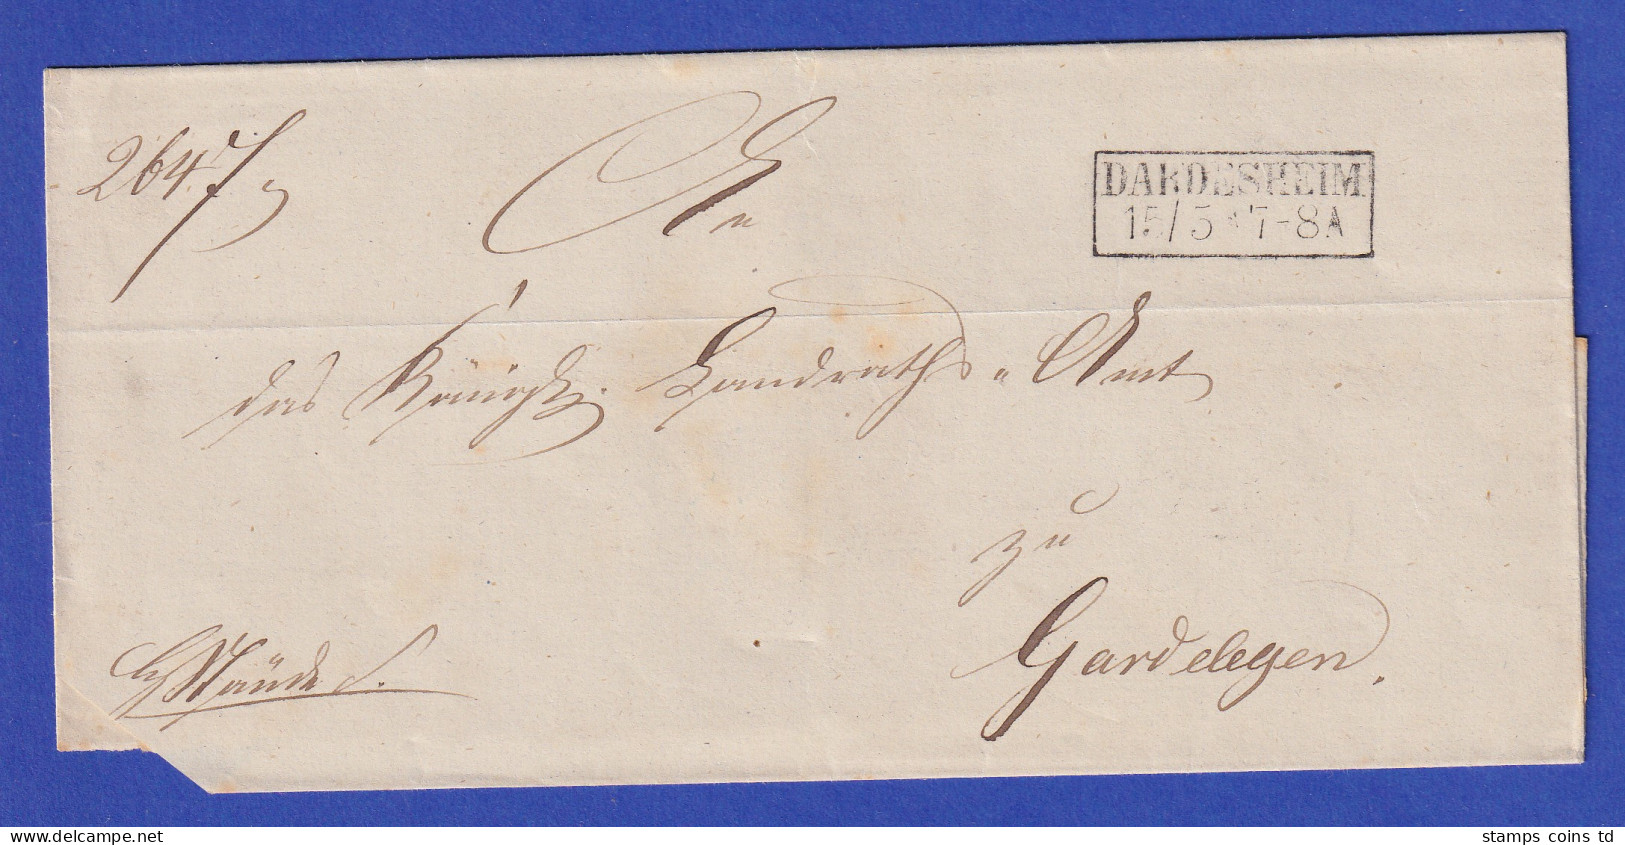 264
An
DARDESHEIM
15/5 * 7-8 A
das Königl. Landraths-Amt
zu
Gardelegen.
© delcampe.net
stamps coins td